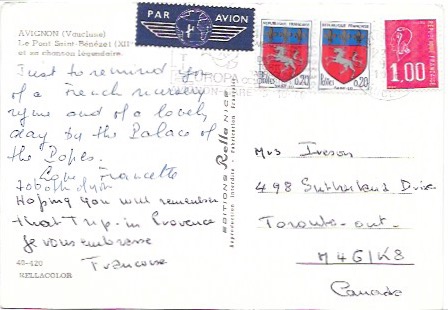 AVIGNON (Vaucluse)
Le Pont Saint-Bénézet (XII
et sa chanson légendaire.
PAR AVION
Just to remind you
of a French nursery
ryme and of a lovely
day by the Palace of
the Popes.
Love Francette
to both of you
Hoping you will remember
that Trip in Provence
Je vous embrasse
Francoise
40-420
RELLACOLOR
EDITIONS Rella NICE
Reproduction Interdite - Fabrication Française
EUROPA
REPUBLIQUE FRANÇAISE
0,20
SAINT-LO
REPUBLIQUE FRANÇAISE
Postes
0,20
SAINT-LO
1,00
Mrs Iveson
498 Sutherland Drive
Toronto-ont.
M4G1K8
Canada